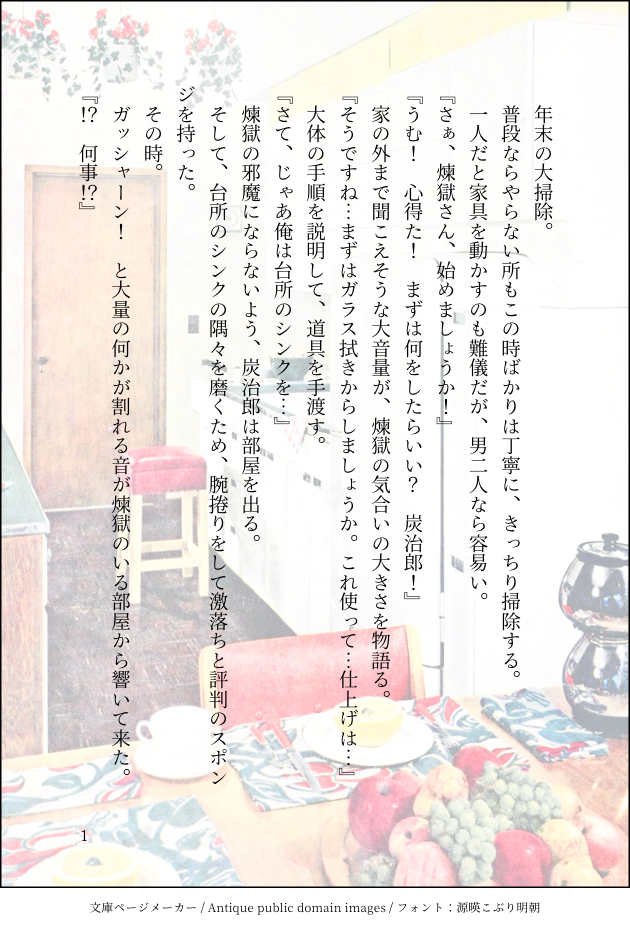 年末の大掃除。
普段ならやらない所もこの時ばかりは丁寧に、きっちり掃除する。
一人だと家具を動かすのも難儀だが、男二人なら容易い。
『さぁ、煉獄さん、始めましょうか！』
『うむ！　心得た！　まずは何をしたらいい？　炭治郎！』
家の外まで聞こえそうな大音量が、煉獄の気合いの大きさを物語る。
『そうですね…まずはガラス拭きからしましょうか。これ使って…仕上げは…』
大体の手順を説明して、道具を手渡す。
『さて、じゃあ俺は台所のシンクを…』
煉獄の邪魔にならないよう、炭治郎は部屋を出る。
そして、台所のシンクの隅々を磨くため、腕捲りをして激落ちと評判のスポン
ジを持った。
その時。
ガッシャーン！　と大量の何かが割れる音が煉獄のいる部屋から響いて来た。
『!?　何事!?』
1
文庫ページメーカー / Antique public domain images / フォント：源暎こぶり明朝